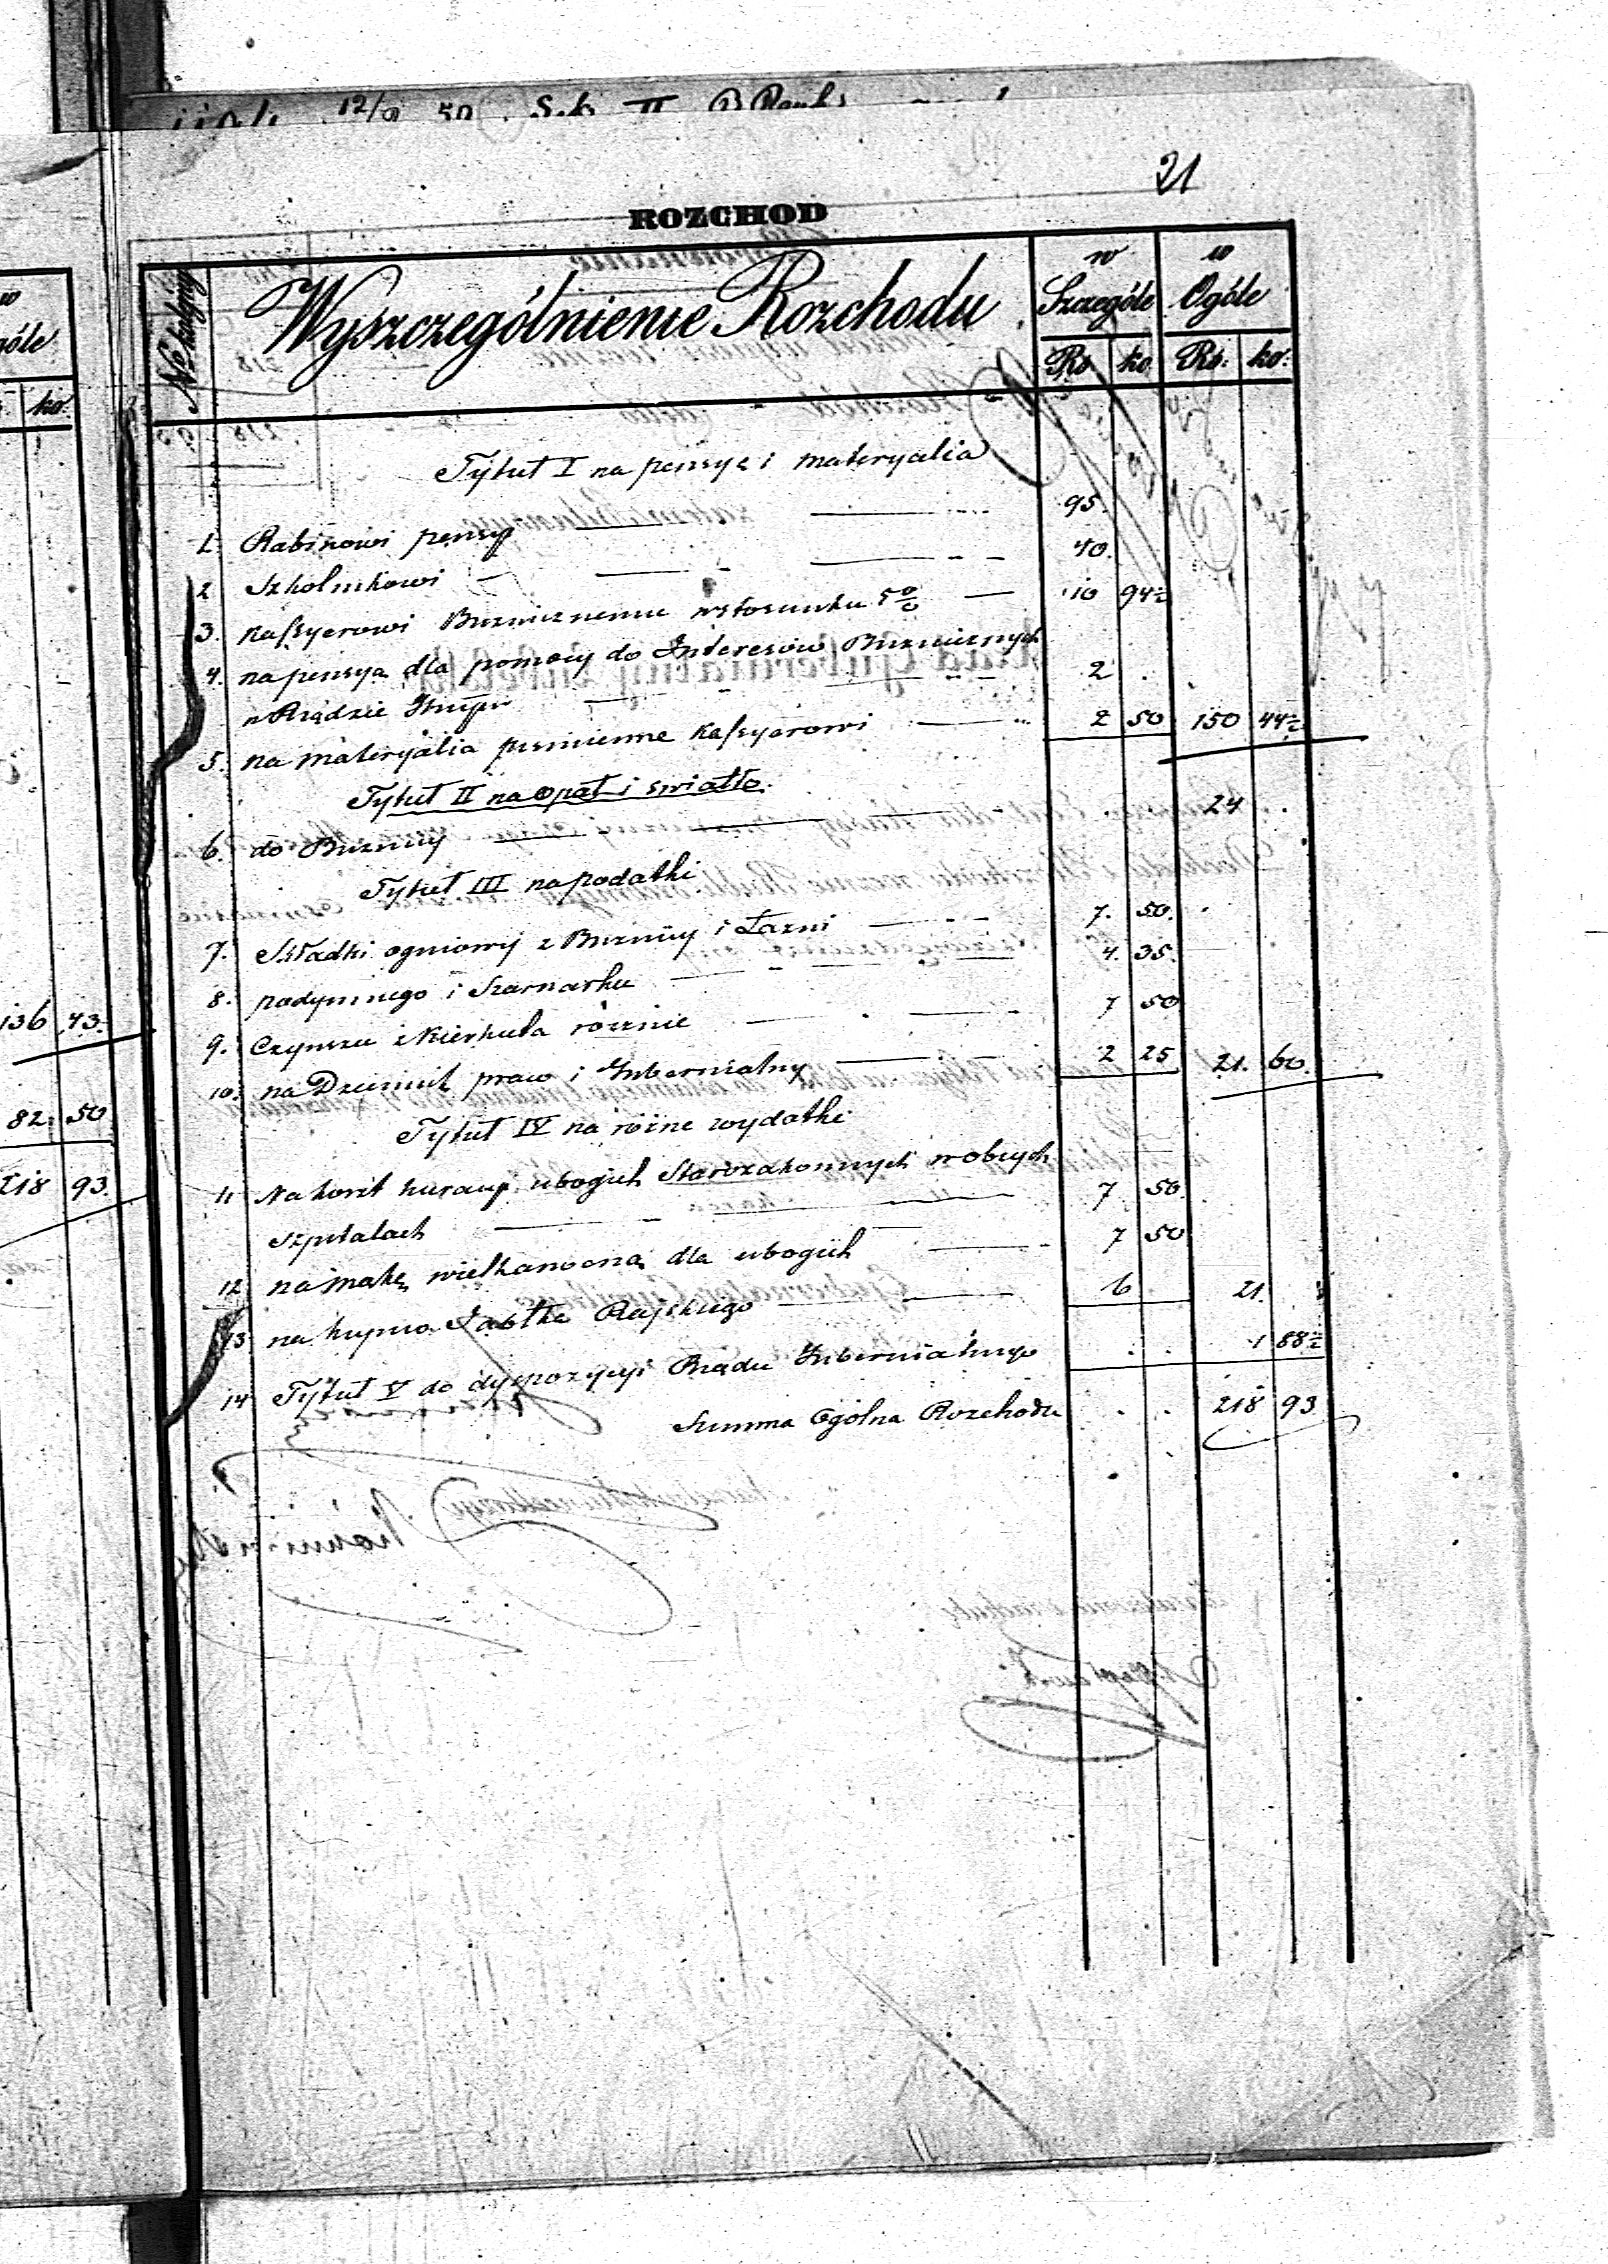 21
ROZCHOD
No kolejny
Wyszczególnienie Rozchodu
w Szczególe
w Ogóle
Rs ko Rs. ko.
Tytuł I na pensye i materyalia
1. Rabinowi pensyi 95.
2 Szkolnikowi 40.
3. Kassyerowi Buznicznemu w stosunku 5 % 10 94½
4. na pensya dla pomocy do Interesów Buznicznych
w Rządzie 2
5. na materyalia pismienne Kassyerowi 2 50 150 44½
Tytuł II na opał i swiatło
6. do Buznicy 24
Tytuł III na podatki
7. Składki ogniowy z Buznicy i Łazni 7. 50.
8. podymnego i Szarwarku 4. 35.
9. Czynszu z Kierkuta rocznie 7 50
10. na Dziennik praw i Gubernialny 2 25 21. 60.
Tytuł IV na rózne wydatki
11 Na koszt kuracyi ubogich Starozakonnych w obcych
szpitalach 7 50.
12 na mąkę wielkanocną dla ubogich 7 50
13 na kupno Jabłka Rajskiego 6 21.
14 Tytuł V do dyspozycyi Rządu Gubernialnego 1 88½
Summa Ogólna Rozchodu 218 93
ko.
136 43
82. 50
218 93.